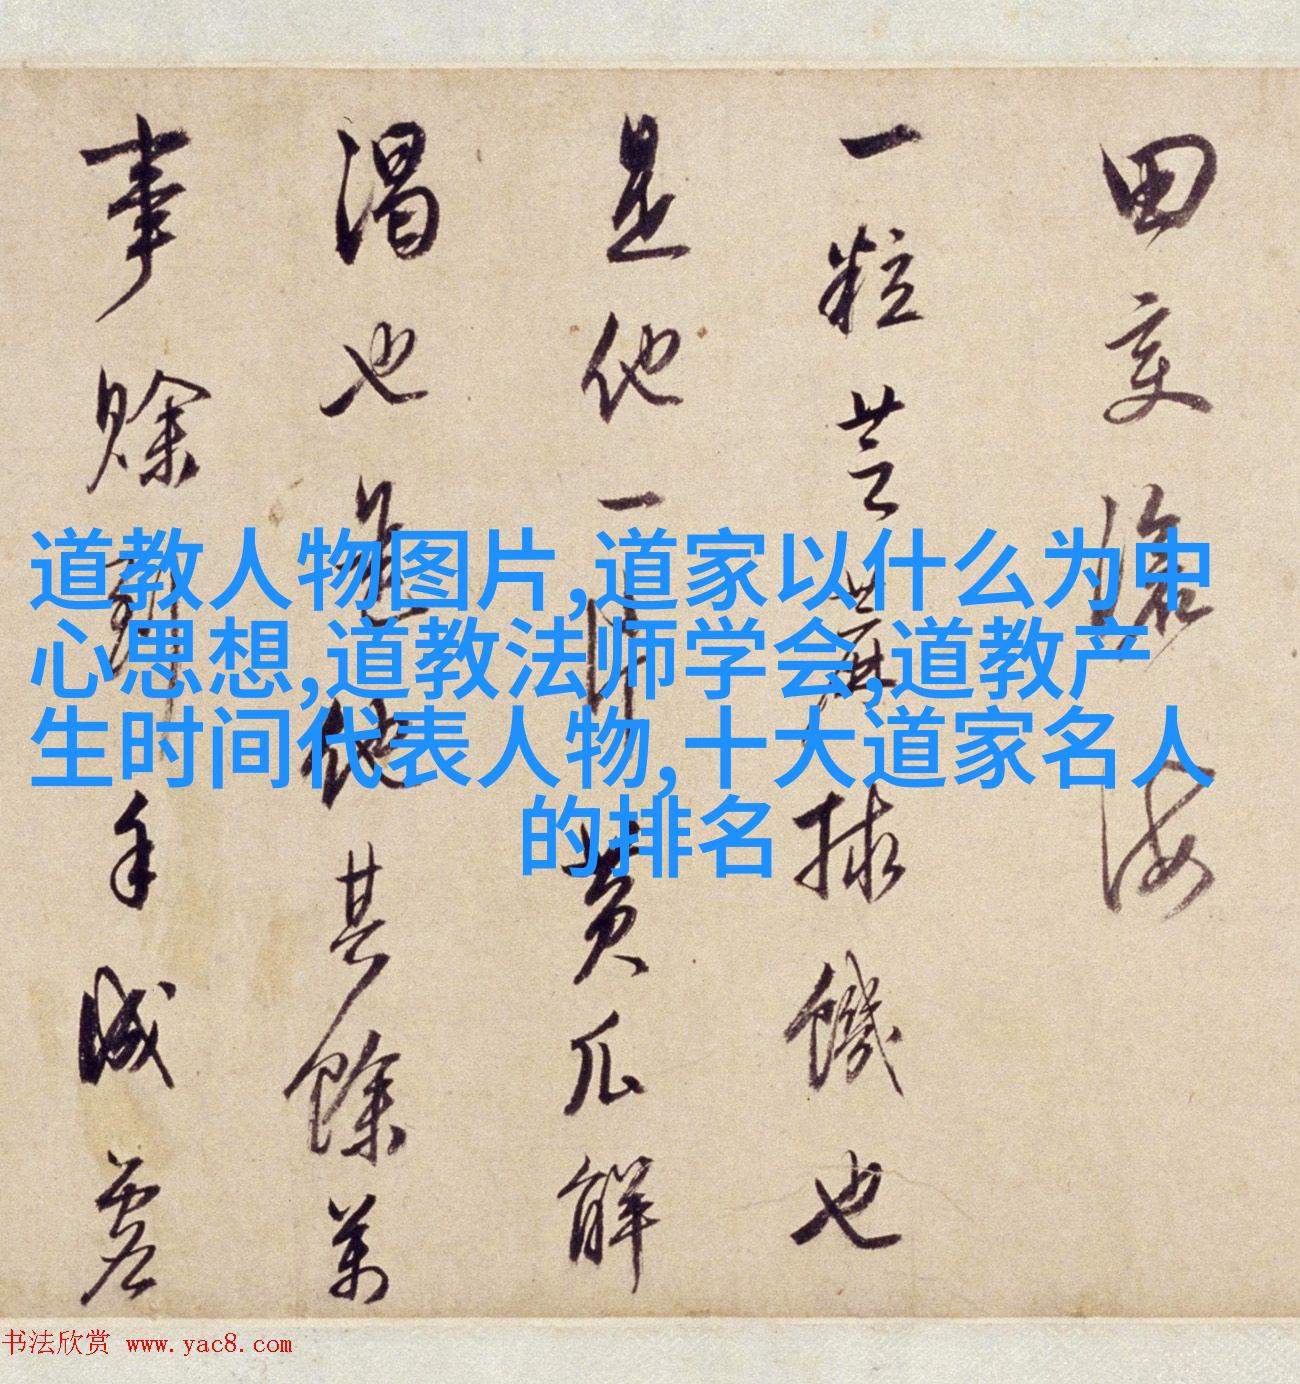 田变滄海
一粒芝蔴捄饑也
是他一條黄瓜解
渴也是他其餘萬
事賒到手
道教人物图片,道家以什么为中
心思想,道教法师学会,道教产
生时间代表人物,十大道家名人
的排名
书法欣赏 www.yac8.com